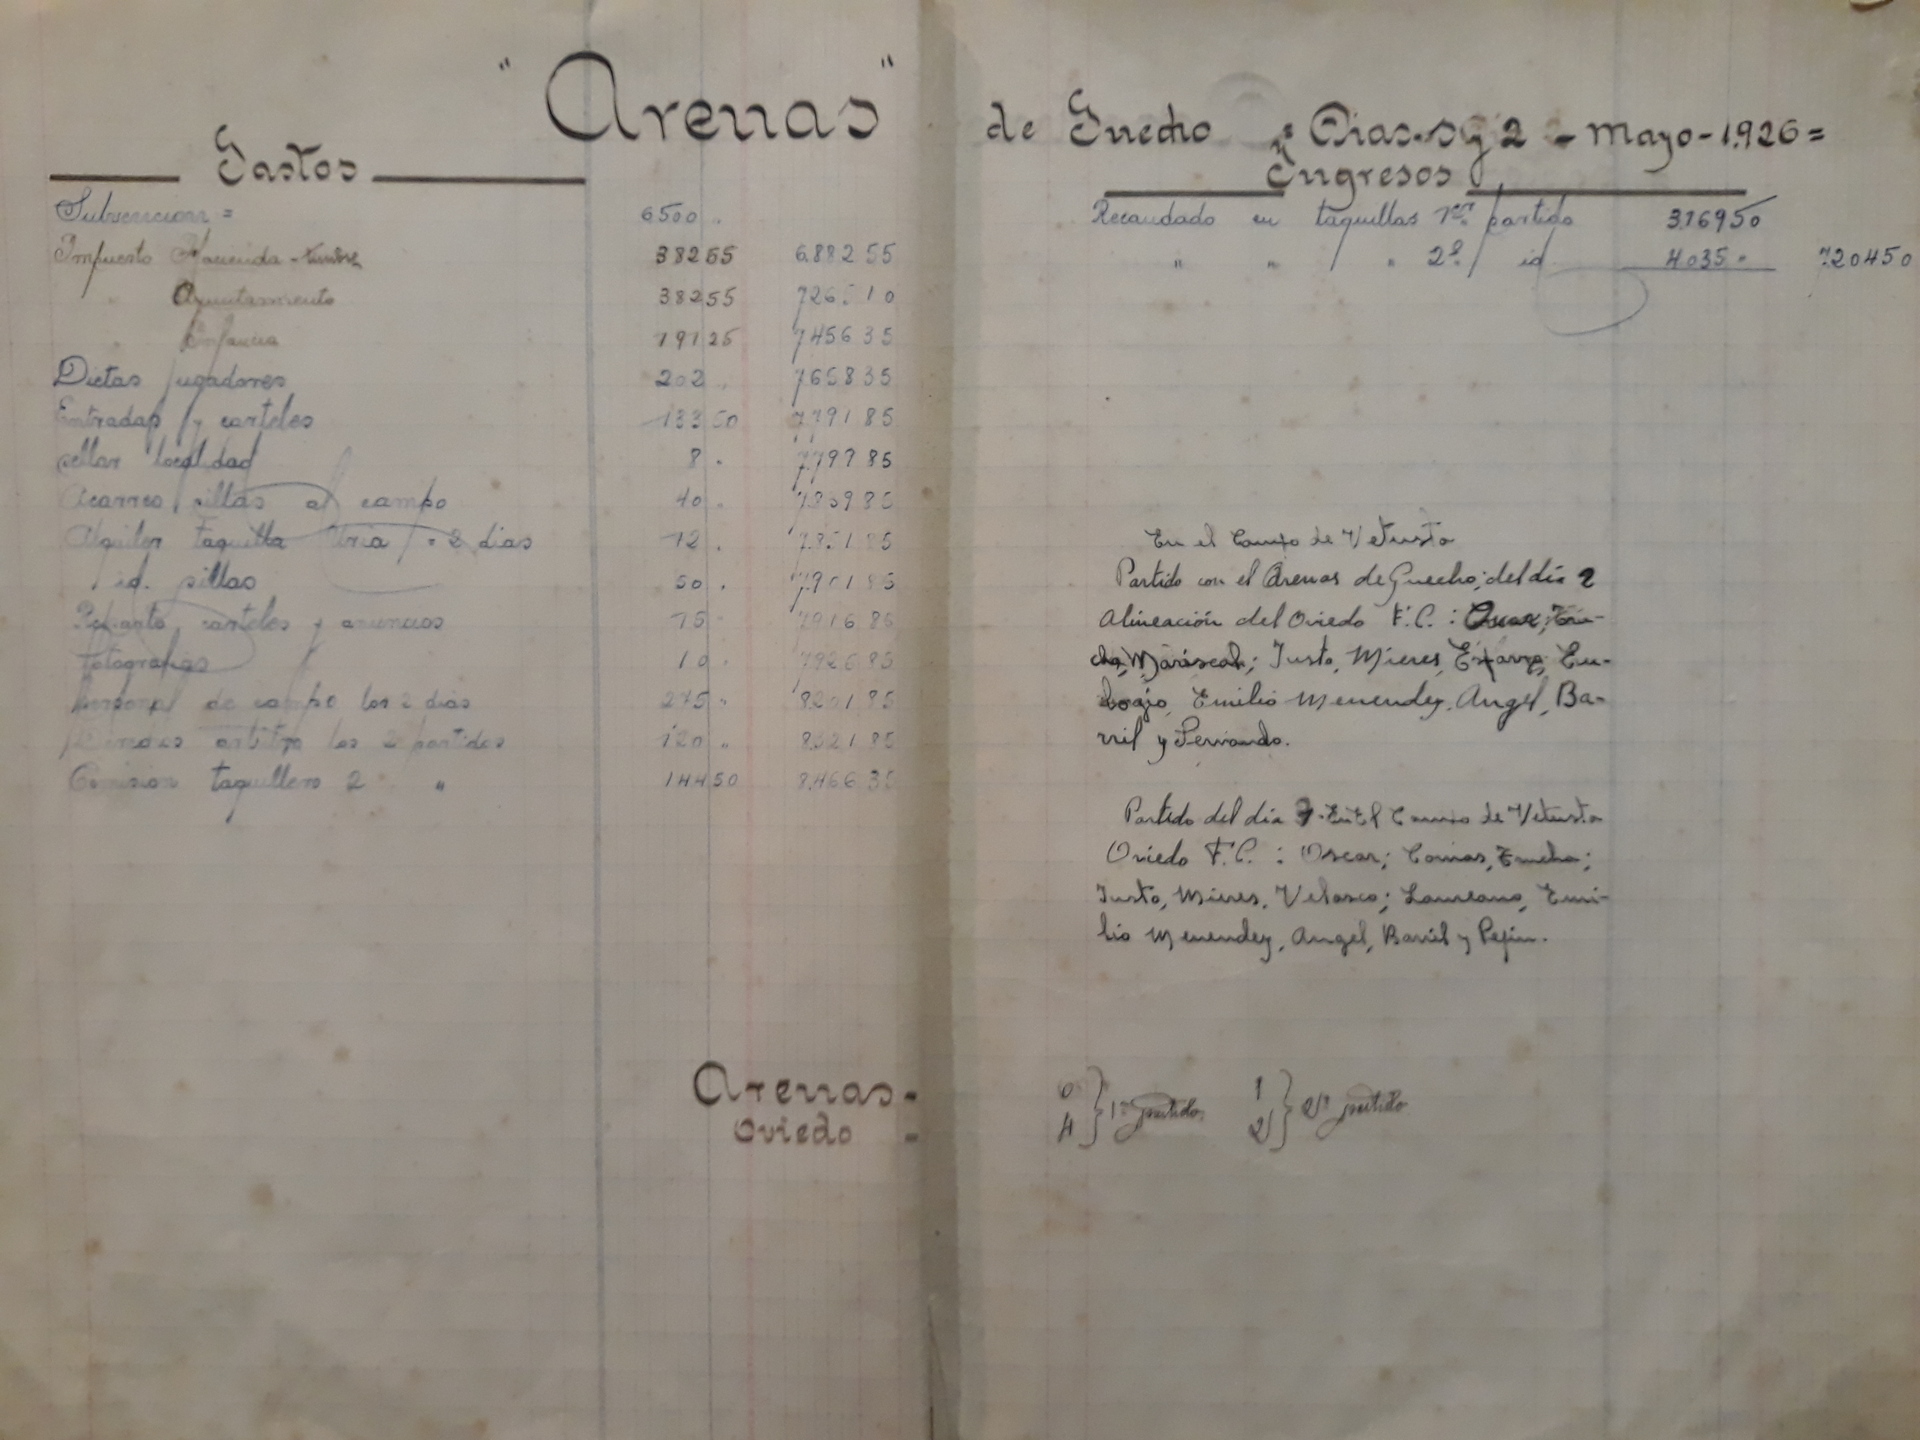 " Arenas " de Guecho = Dias y 2 - Mayo - 1.926 =
Gastos
Subvencion = 6500 .
Impuesto Hacienda - timbre 382 55 6.882 55
" Ayuntamiento 382 55 7265 10
" Infancia 191 25 7456 35
Dietas jugadores 202 . 7658 35
Entradas y carteles 133 50 7791 85
sellar localidad 8 . 7799 85
Acarreo sillas al campo 40 . 7839 85
Alquiler taquilla Uria = 2 dias 12 . 7851 85
id. sillas 50 . 7901 85
Reparto carteles y anuncios 15 . 7916 85
fotografias 10 . 7926 85
personal de campo los 2 dias 275 " 8201 85
arbitro los 2 partidos 120 " 8321 85
Comision taquillero 2 " 144 50 8.466 35
Arenas -
Oviedo -
Ingresos
Recaudado en taquillas 1er partido 3.169 50
" " " 2º id 4.035 - 7.204 50
En el Campo de Vetusta
Partido con el Arenas de Guecho; del día 2
Alineación del Oviedo F.C. : Oscar; Tru-
cha, Mariscal; Justo, Mieres, Eu-
logio, Emilio Menendez, Angel, Ba-
rril y Fernando.
Partido del día En El Campo de Vetusta
Oviedo F.C. : Oscar; Comas, Trucha;
Justo, Mieres, Velasco; Laureano, Emi-
lio Menendez, Angel, Barril y Pepin.
0 } 1er partido. 1 } 2º partido
4 2